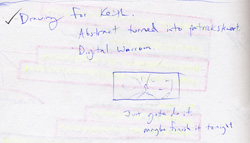 ✓ Drawing for Keith.
Abstract turned into patrick stuart.
· Digital Warrom
Just gotta do it
maybe finish it tonight